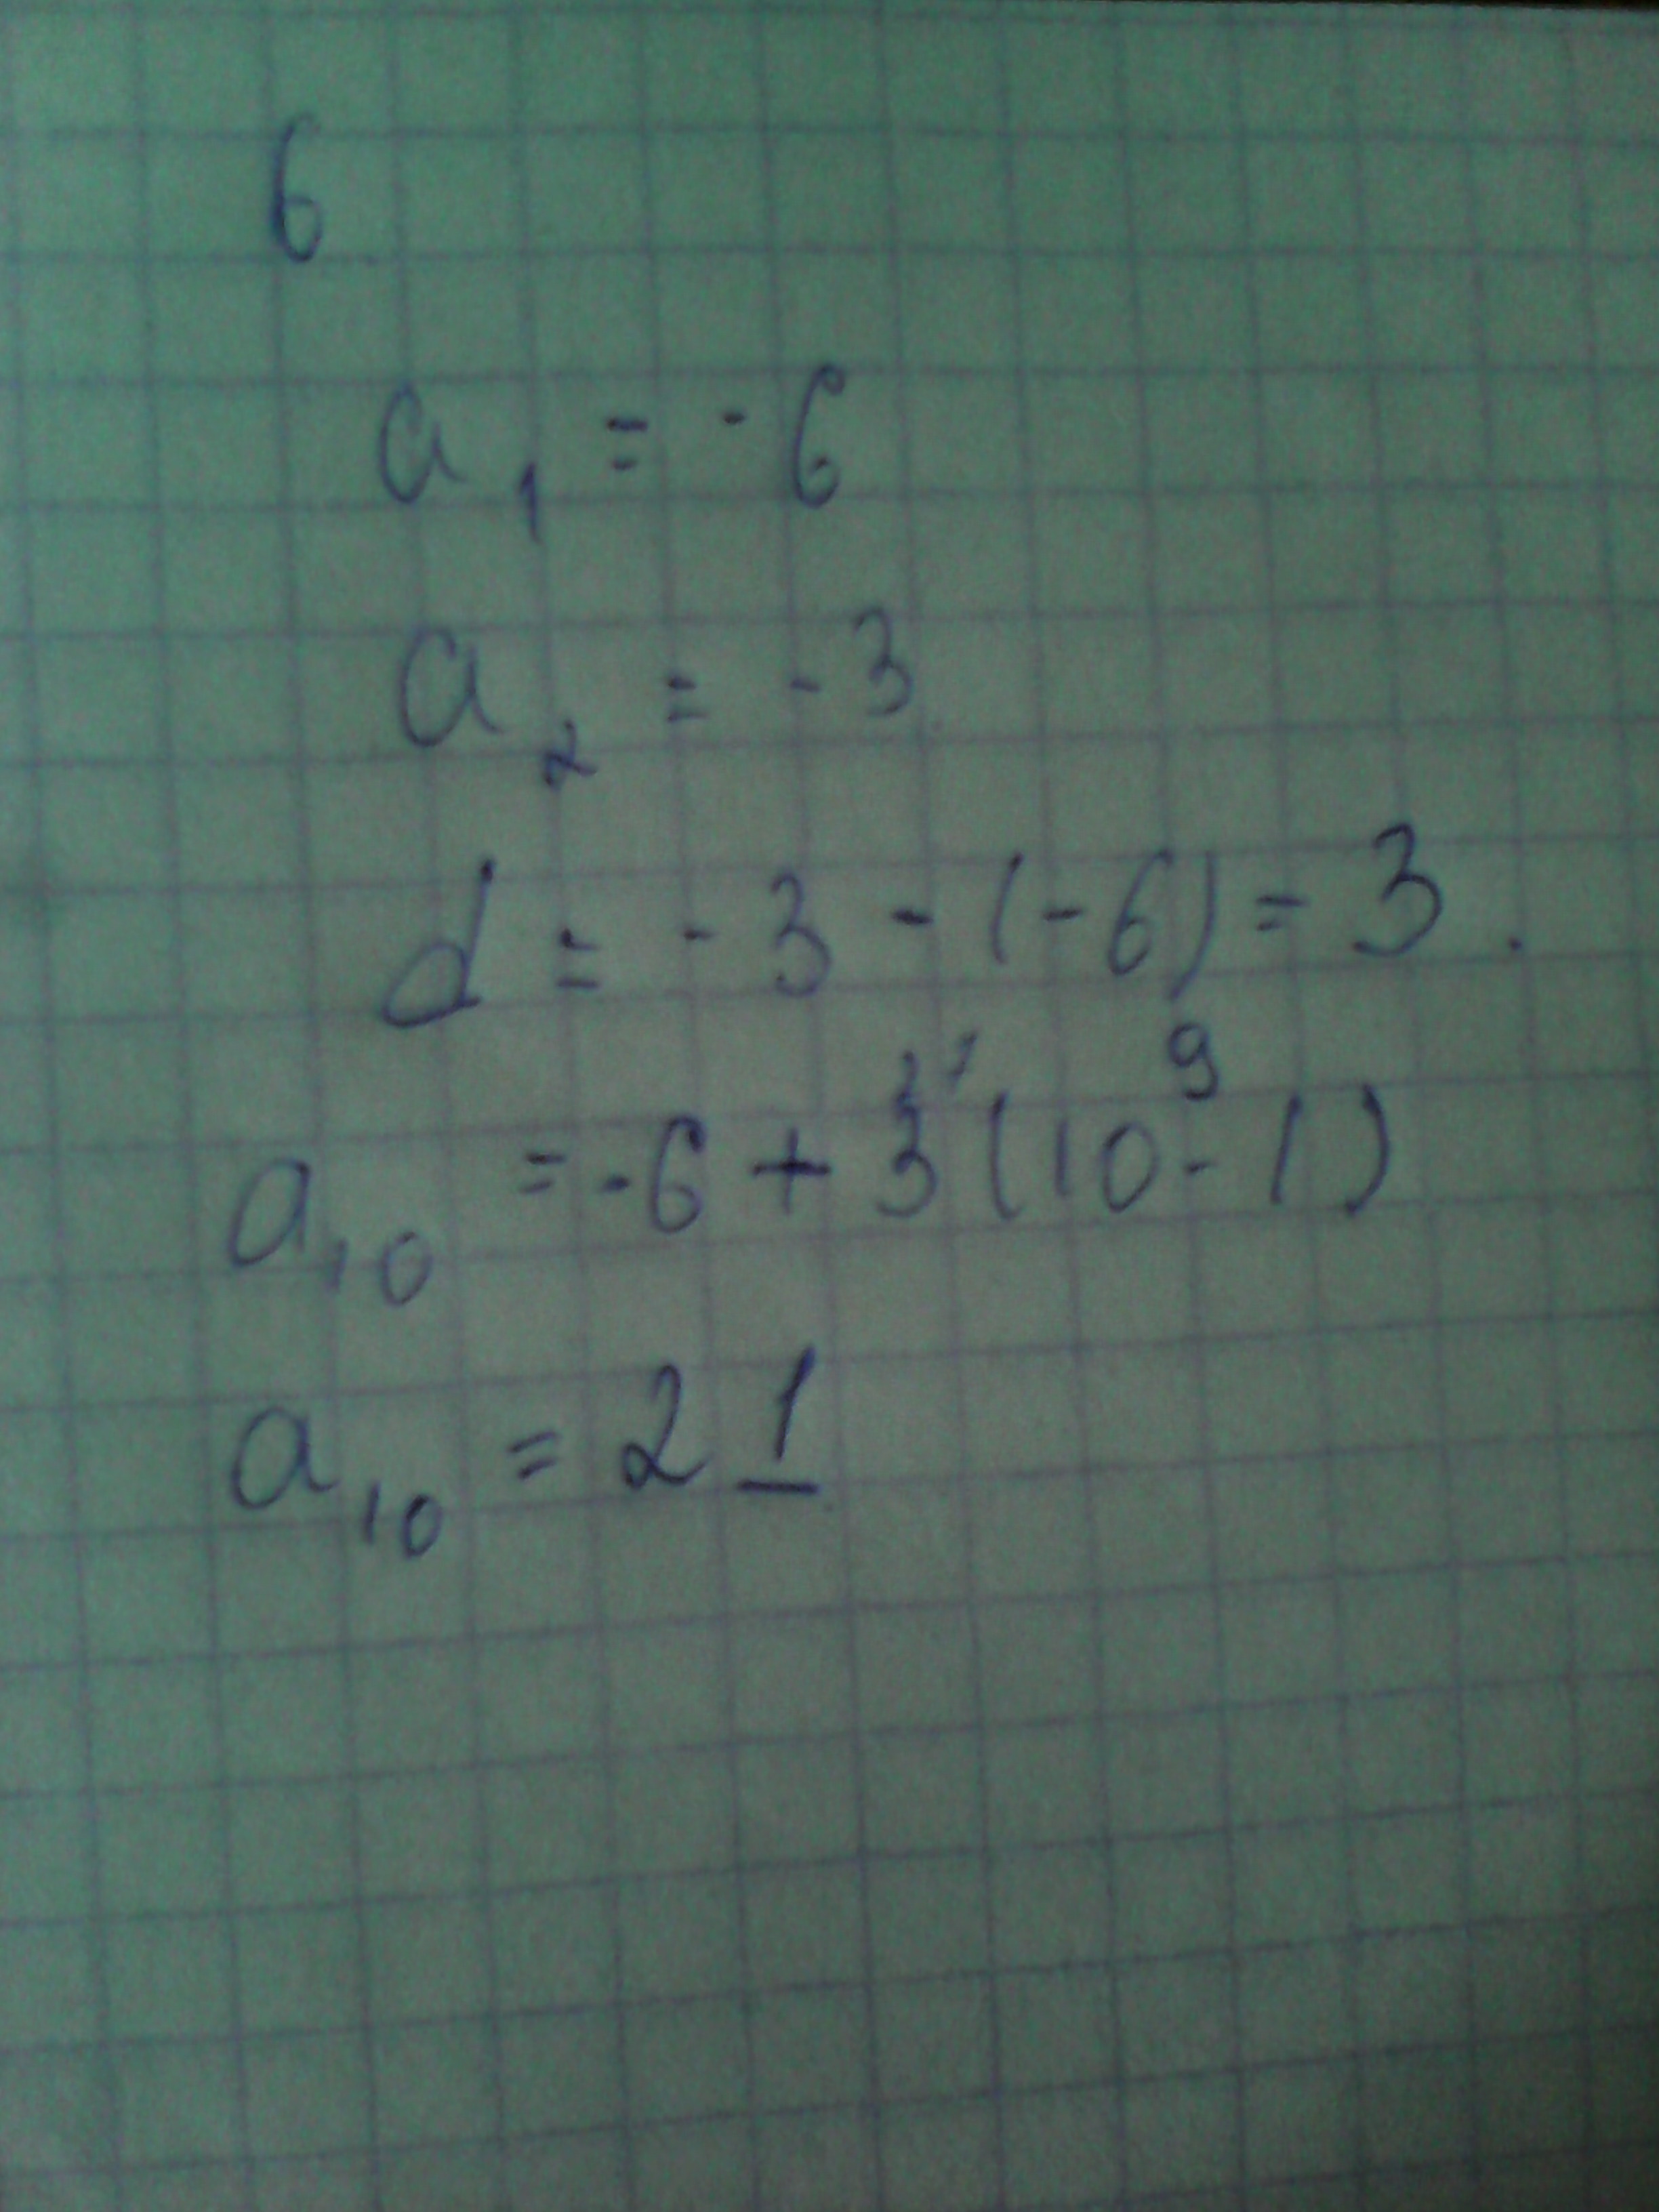 6
a₁ = -6
a₂ = -3
d = -3 - (-6) = 3.
9
a₁₀ = -6 + 3 (10 - 1)
a₁₀ = 21